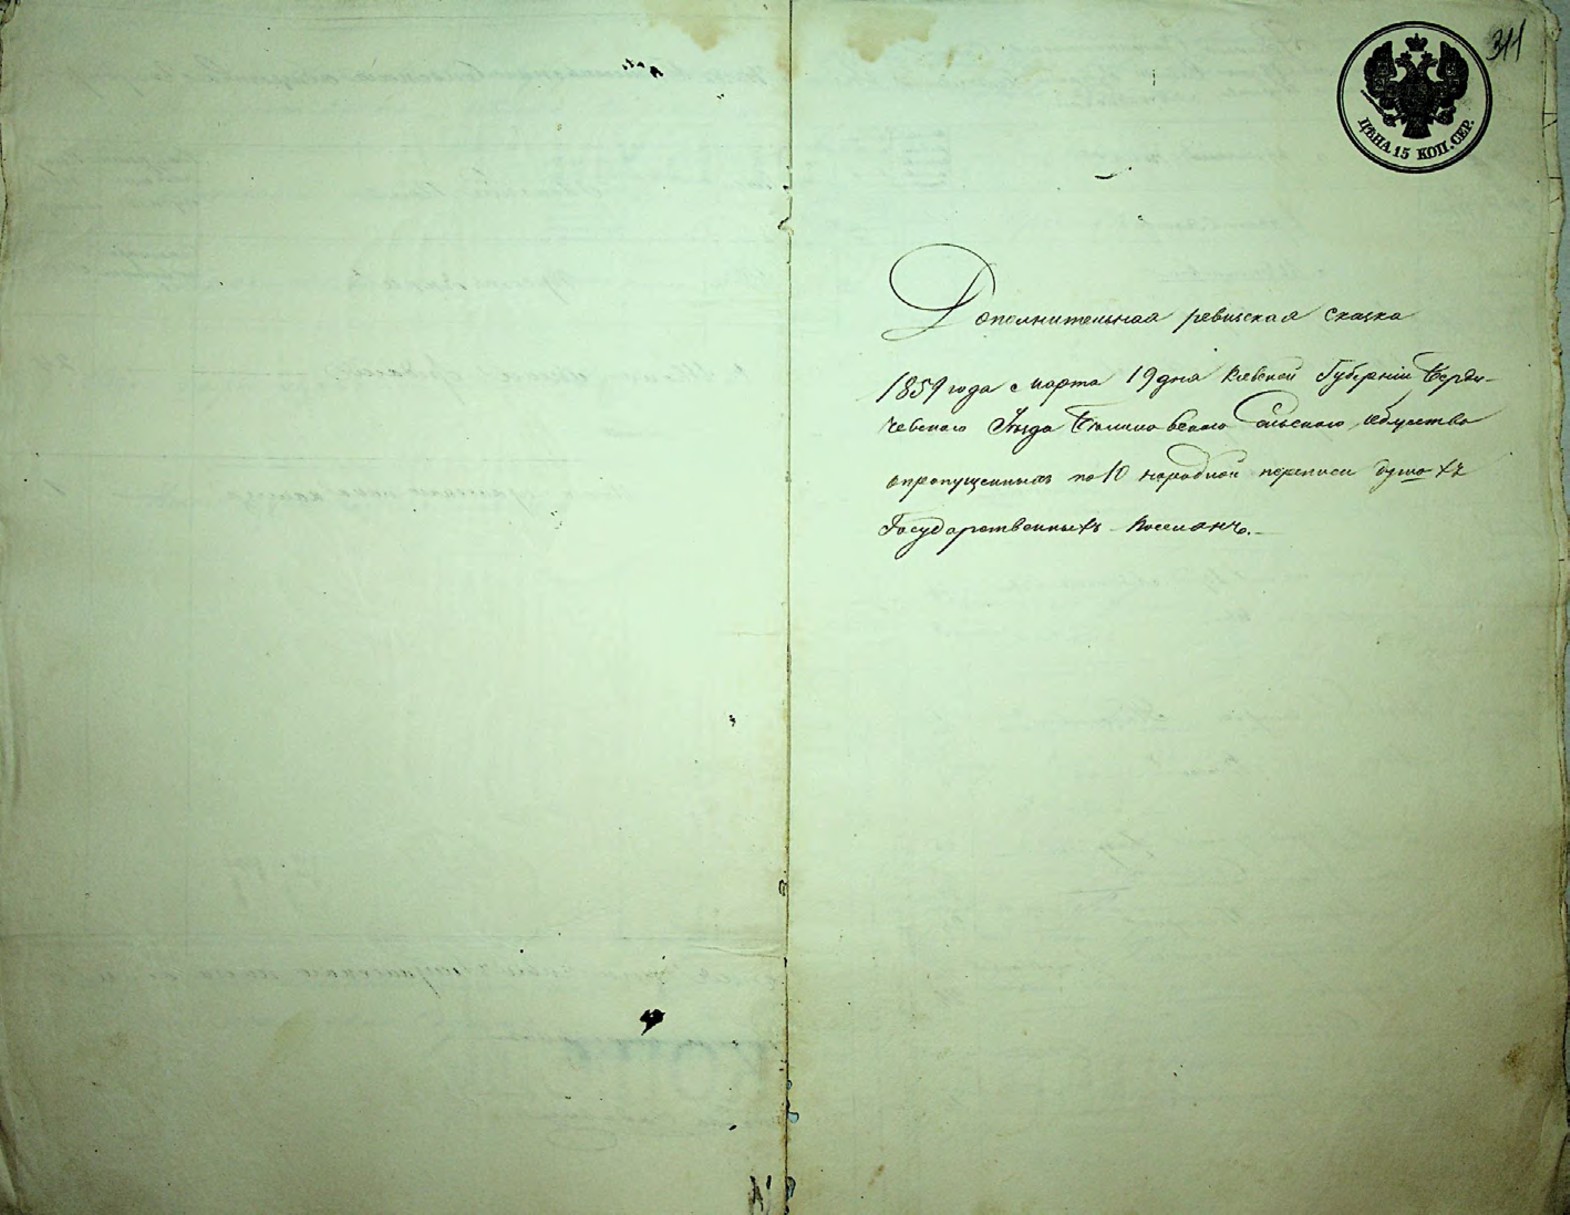 311
ЦѢНА 15 КОП. СЕР.
Дополнительная ревизская сказка
1859 года марта 19 дня Киевской Губерніи Берди-
чевского Уѣзда Сельского общества
опропущенныхъ по 10 народной переписи душахъ
Государственныхъ Поселянъ.